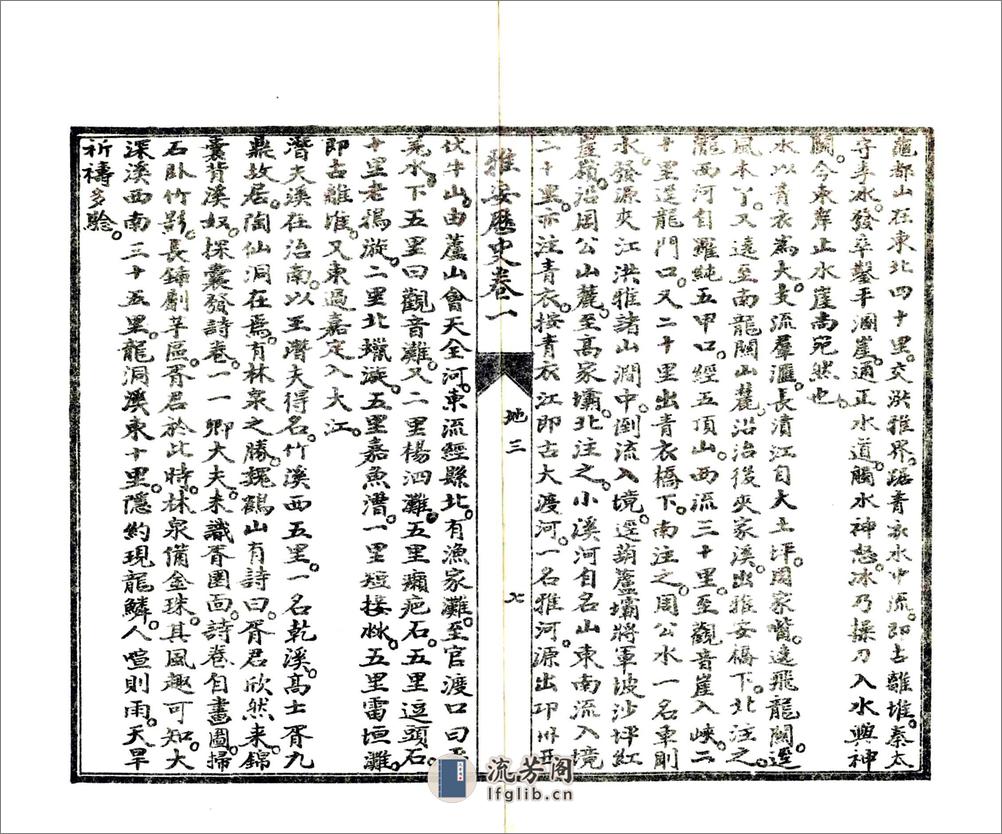 龜都山在東北四十里。交洪雅界。踞青衣水中流。即古離堆。秦太
守李冰。發卒鑿平溷崖。通正水道。觸水神怒。冰乃操刀入水與神
鬭。今東岸止水崖尚宛然也。
水以青衣為大。支流羣滙。長濆江自大土坪。周家嘴。遶飛龍關。逕
風木丫。又遶至南龍關山麓。沿治後夾家溪。出雅安橋下。北注之。
隴西河自羅純五甲口。經五頂山。西流三十里。至觀音崖入峽。二
十里逕龍門口。又二十里出青衣橋下。南注之。周公水一名車剛
水。發源夾江洪雅諸山澗中。倒流入境。逕葫蘆壩將軍坡沙坪紅
星嶺。沿周公山麓。至高家壩。北注之。小溪河自名山東南流入境
二十里。亦注青衣。按青衣江即古大渡河。一名雅河。源出邛州丑
雅安歷史卷一 地三 七
伐牛山。由蘆山會天全河。東流經縣北。有漁家灘。至官渡口曰平
羌水。下五里曰觀音灘。又二里楊泗灘。五里癩疤石。五里逗頭石。
十里老鴉漩。二里北獵漩。五里嘉魚漕。一里短接㳇。五里雷垣灘。
即古離堆。又東過嘉定入大江。
潛夫溪在治南。以王潛夫得名。竹溪西五里。一名乾溪。高士胥九
鼎故居。陶仙洞在焉。有林泉之勝。魏鶴山有詩曰。胥君欣然來。錦
囊背溪奴。探囊發詩卷。一一卿大夫。未識胥園面。詩卷自畫圖。掃
石臥竹影。長鍤劚芋區。胥君於此時。林泉備金珠。其風趣可知。大
深溪西南三十五里。龍洞溪東十里。隱約現龍鱗。人喧則雨。天旱
祈禱多驗。
流芳阁
lfglib.cn